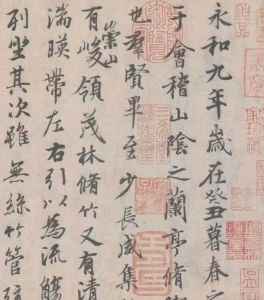 永和九年歲在癸丑暮春之
于會稽山陰之蘭亭脩
也羣賢畢至少長咸集
有崇山峻領茂林脩竹又有清
湍暎帶左右引以為流觴
列坐其次雖無絲竹管